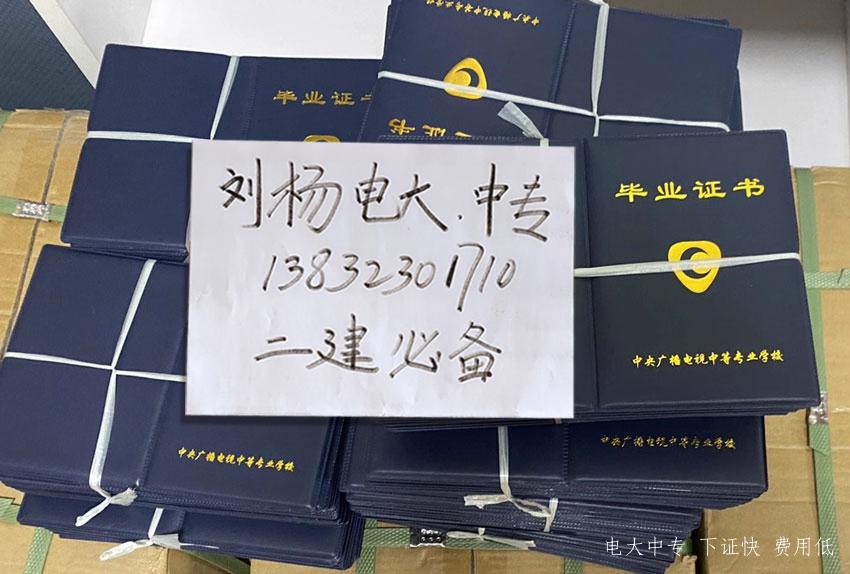 中央广播电视中等专业学校
毕业证书
毕业证书
毕业证书
刘杨电大.中专
13832301710
二建必备
中央广播电视中等专业学校
中央广播电视中等专业学校
中央广播电视中等专业学校
电大中专 下证快 费用低